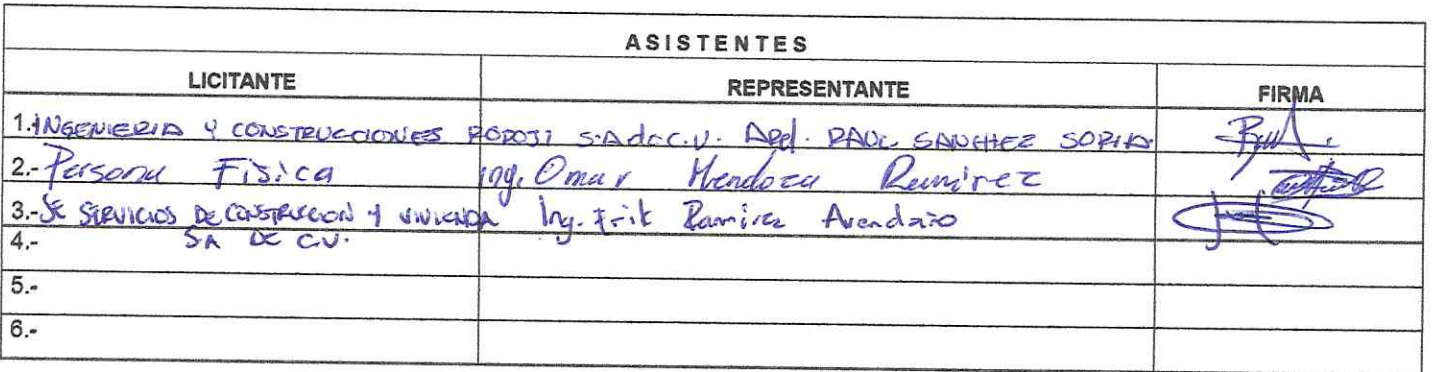 ASISTENTES
LICITANTE REPRESENTANTE FIRMA
1. INGENIERIA Y CONSTRUCCIONES RODOJI S.A de C.V. RAUL SANCHEZ SORIA
2.- Persona Fisica ing. Omar Mendoza Ramirez
3.- SE SERVICIOS DE CONSTRUCCION Y VIVIENDA Ing. Erik Ramirez Avendaño
4.- SA DE C.V.
5.-
6.-